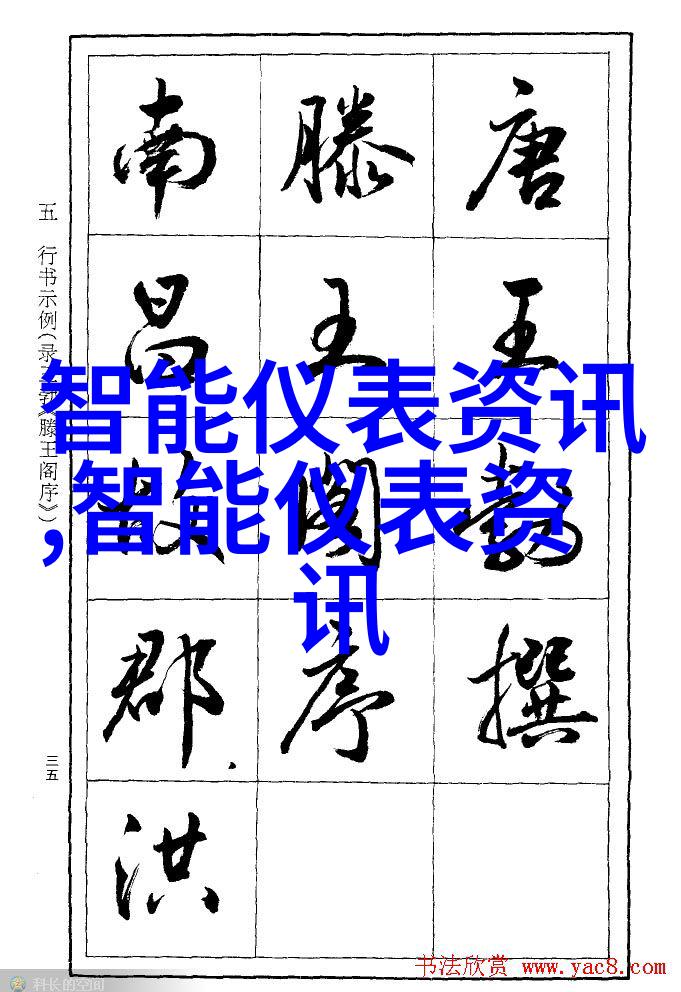 唐王勃撰
滕王阁序
南昌故郡.
洪
五 行书示例(录王勃《滕王阁序》)
三五
智能仪表资讯
,智能仪表资
讯
书法欣赏 www.yac8.com
科长的空间